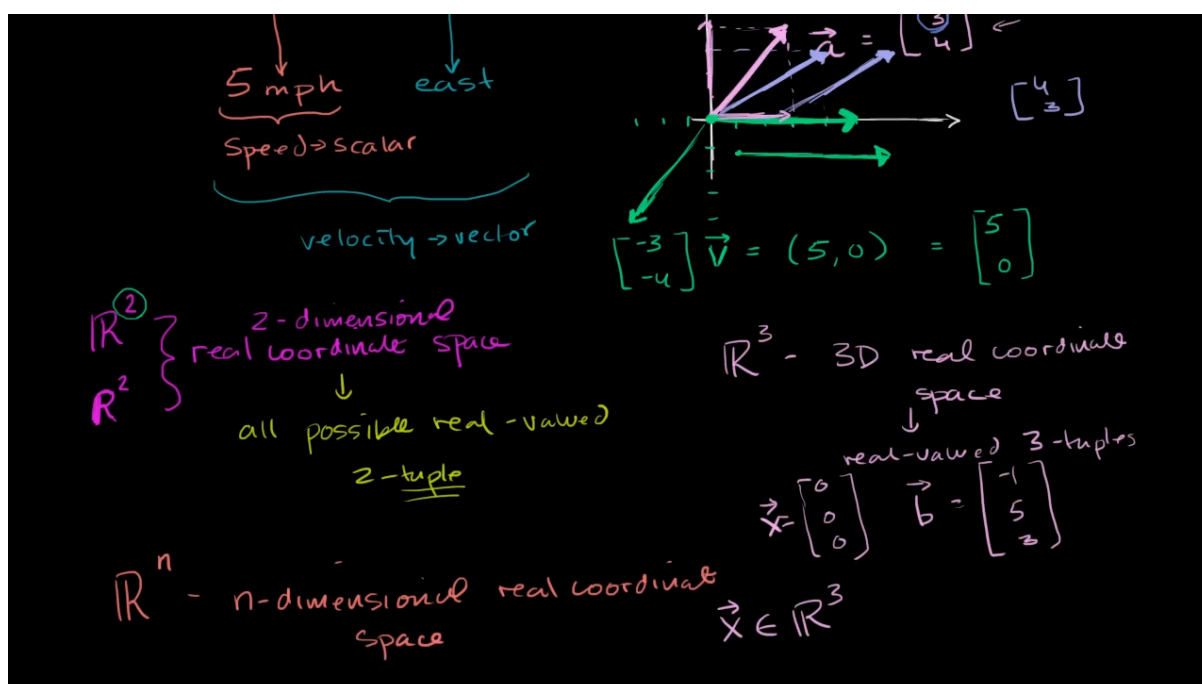 5 mph
east
speed → scalar
velocity → vector
a = [3
4]
[4
3]
[-3
-4]
v = (5,0) = [5
0]
ℝ²
R²
2-dimensional
real coordinate space
↓
all possible real-valued
2-tuple
ℝ³ - 3D real coordinate
space
↓
real-valued 3-tuples
x = [0
0
0]
b = [-1
5
3]
ℝⁿ - n-dimensional real coordinat
space
x ∈ ℝ³